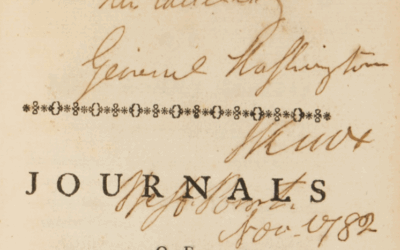 General Washington
HKnox
JOURNALS
West Point.
Nov. 1782
OF